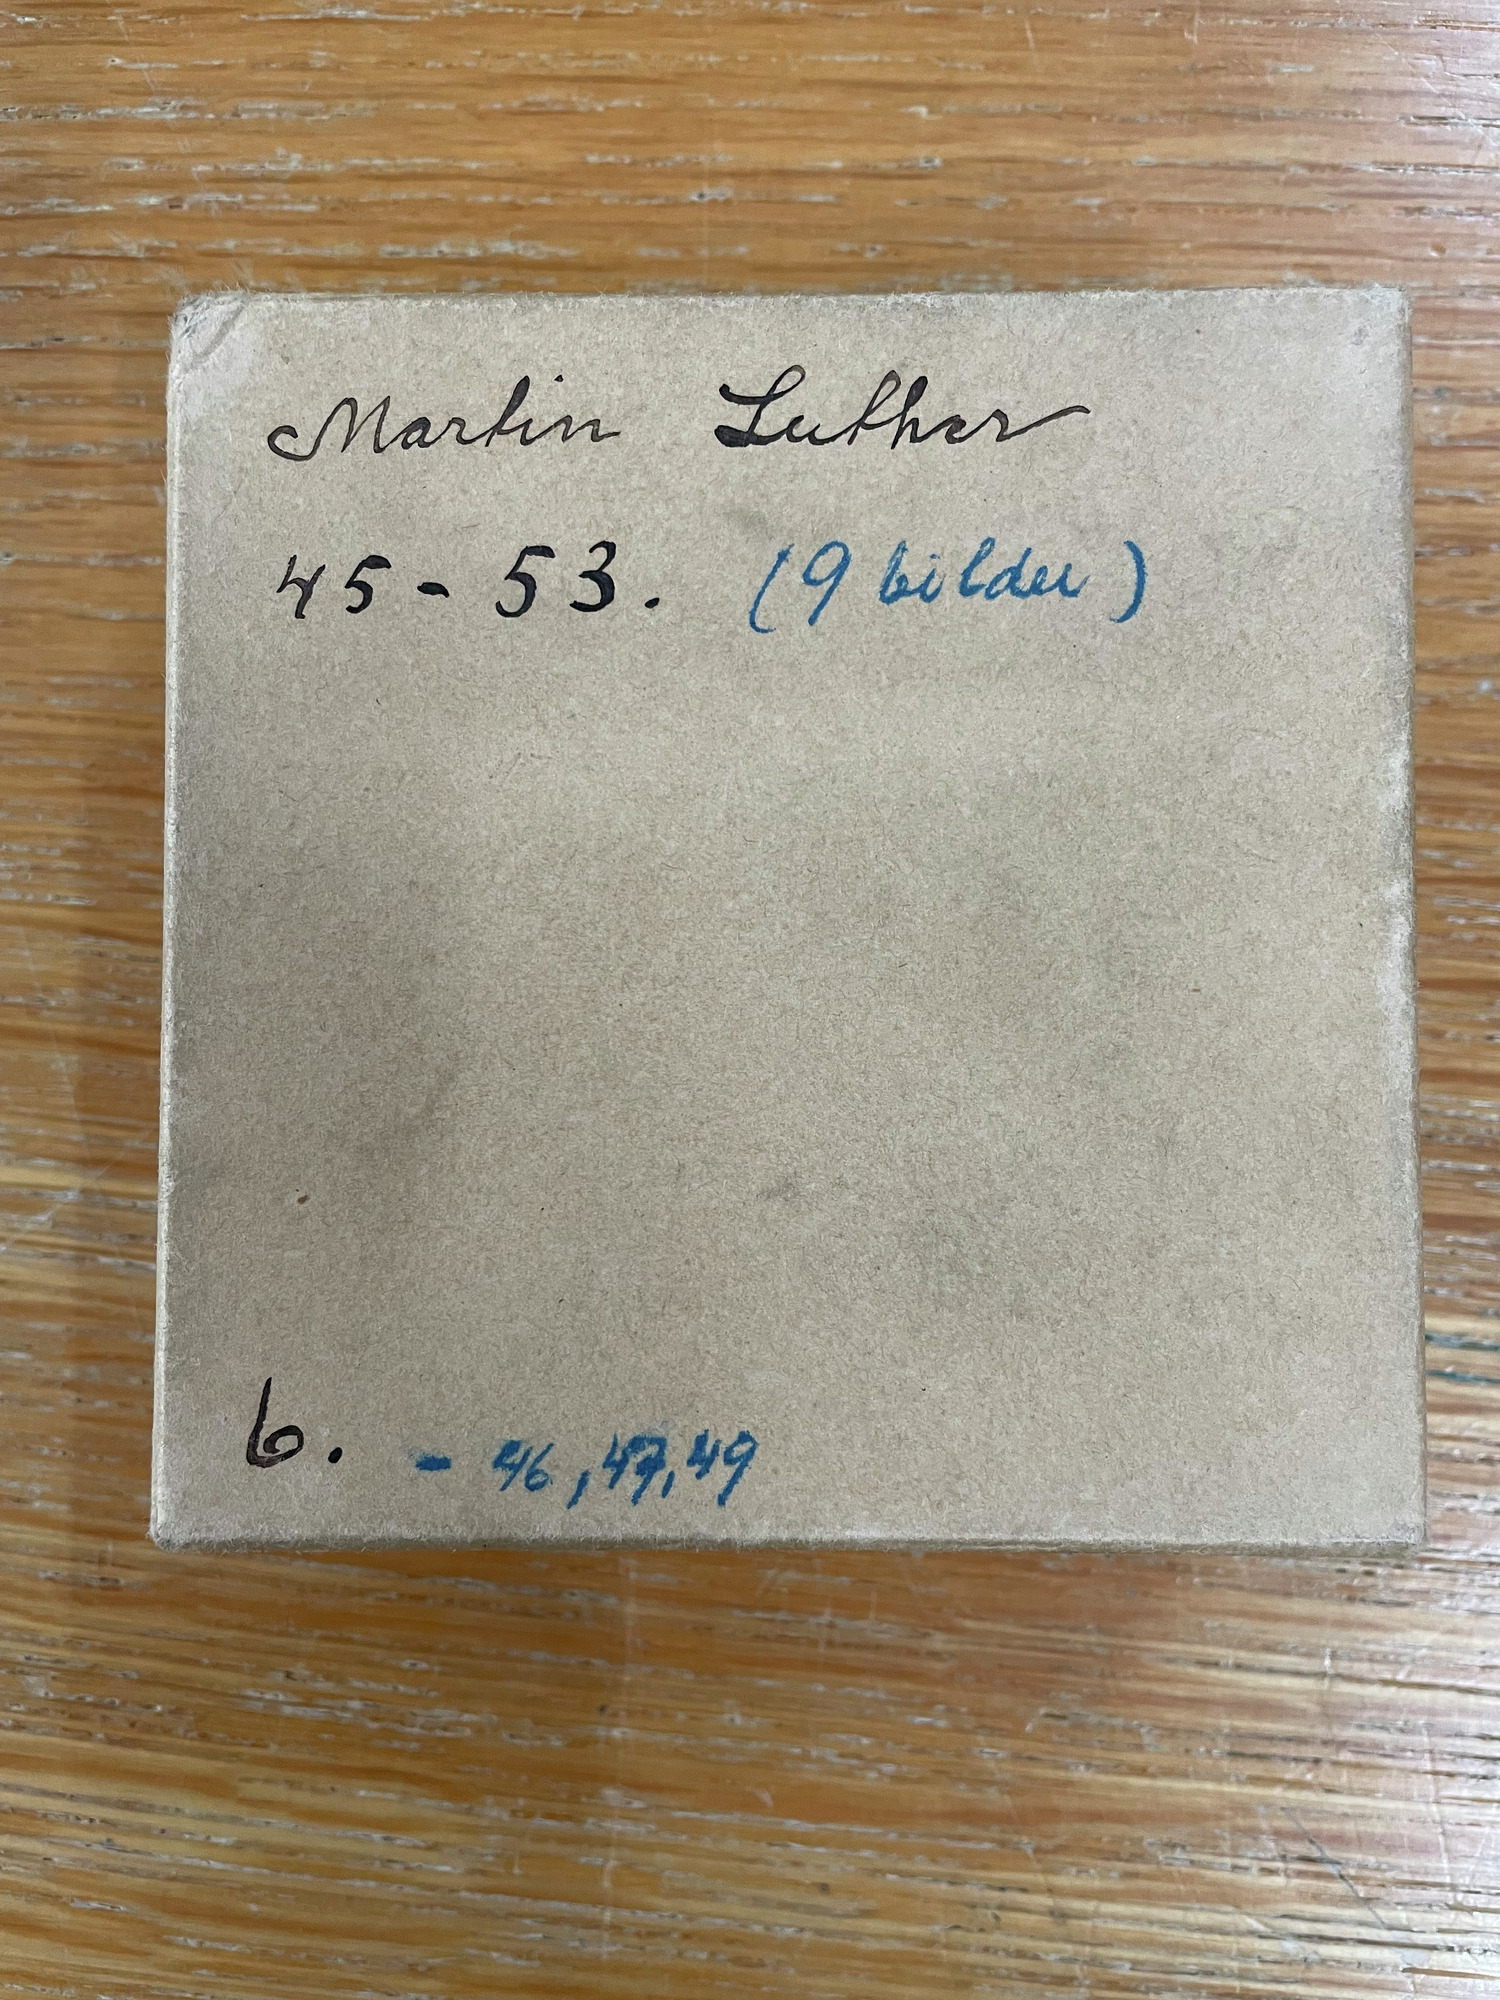 Martin Luther
45 - 53. (9 bilder)
6. - 46, 47, 49